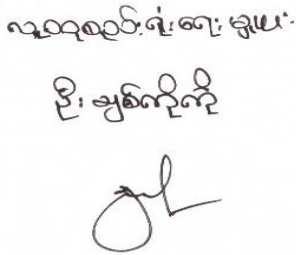 လူထုစည်းရုံးရေးမှူး
ဦးချစ်ကိုကို